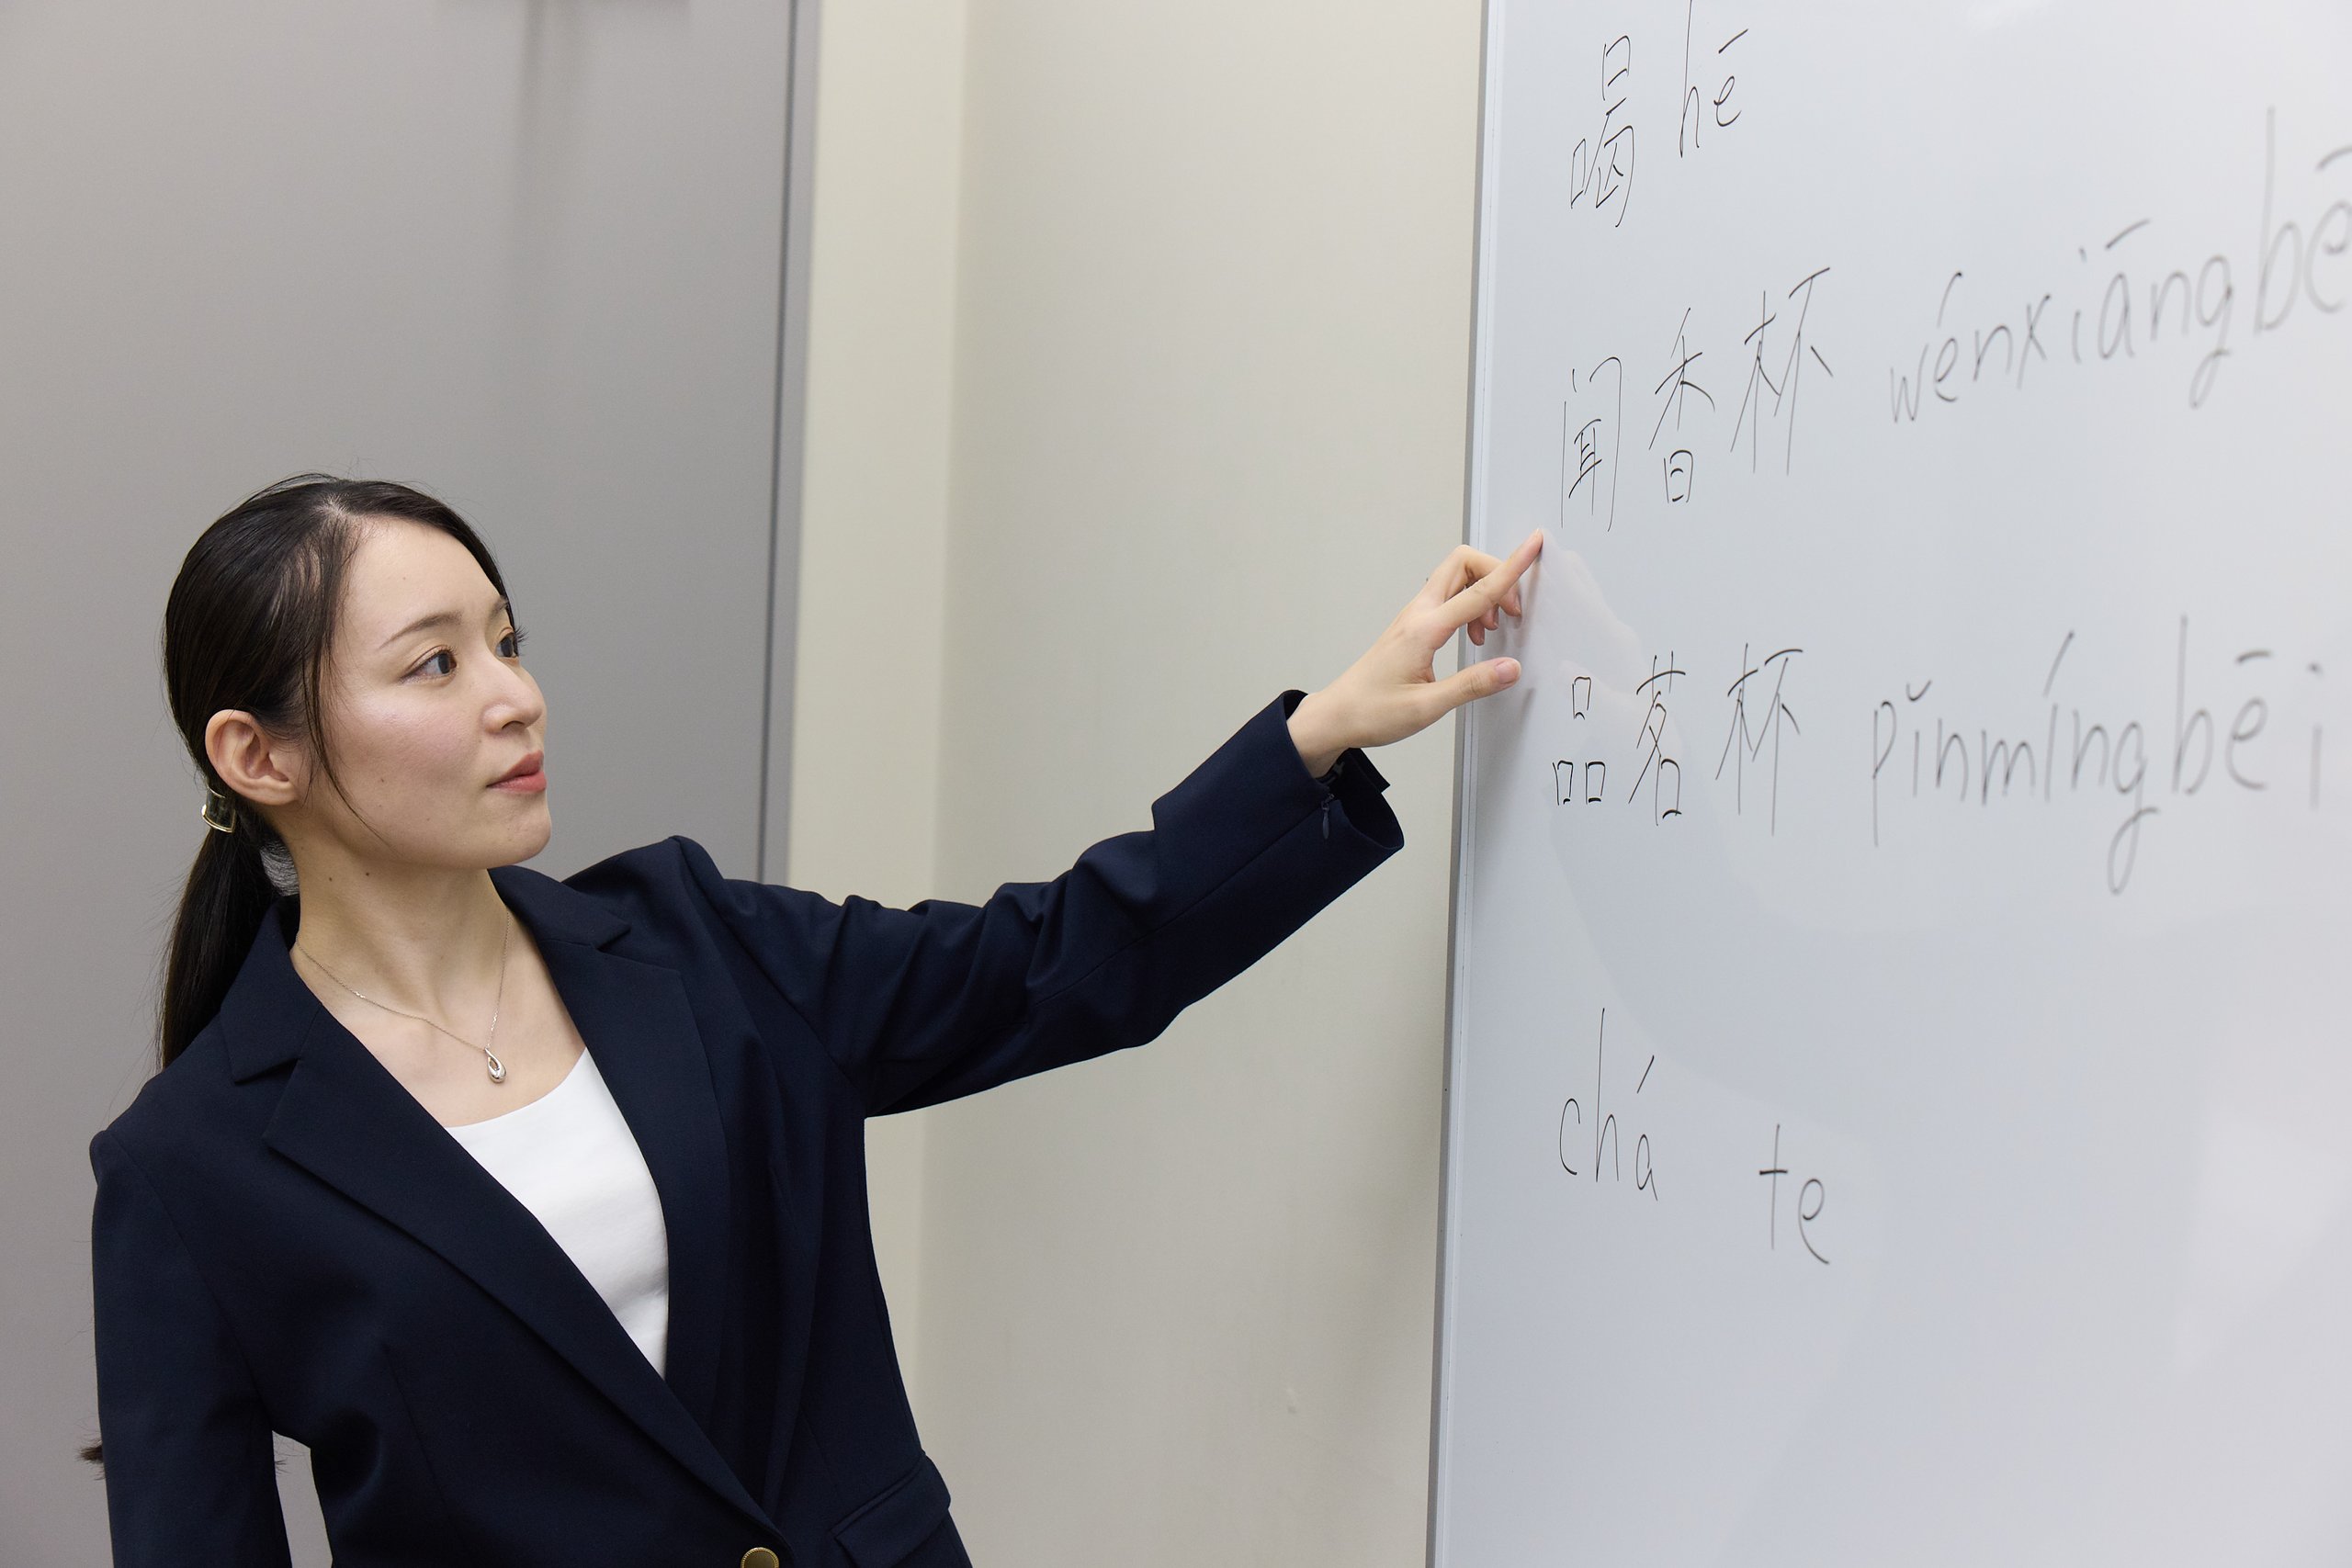 喝 hē
闻香杯 wénxiāngbē
品茗杯 pǐnmíngbēi
chá te